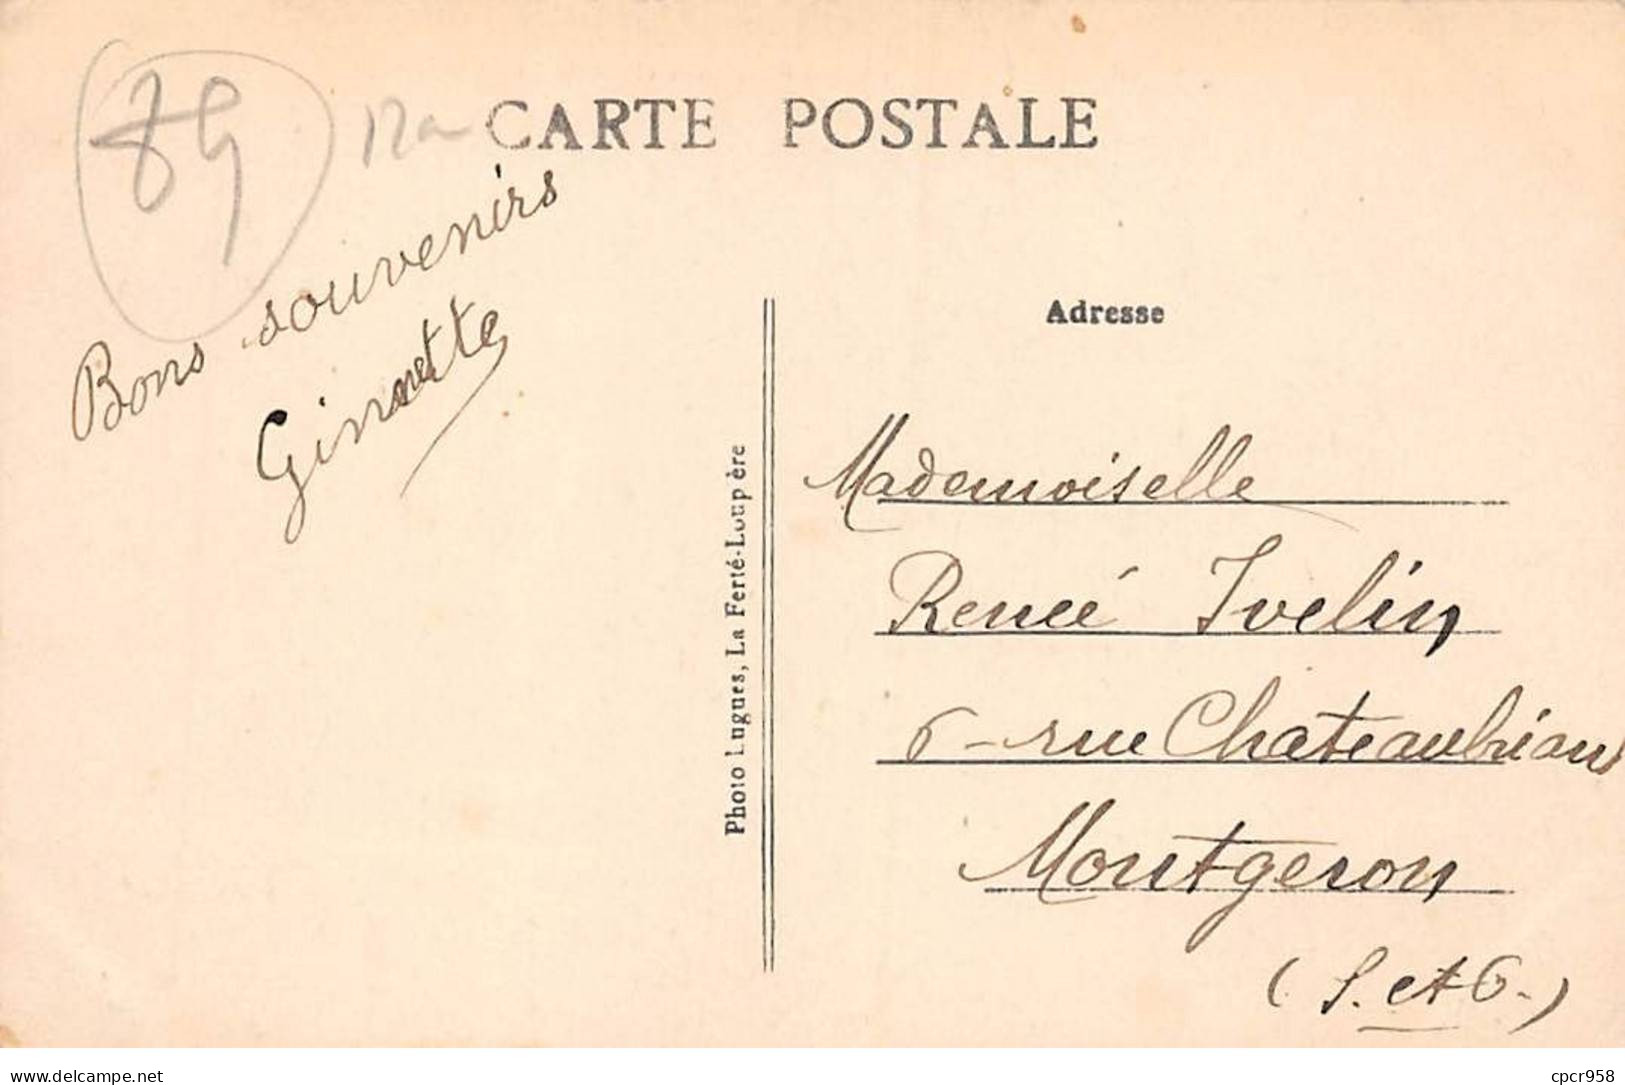 89 12a
CARTE POSTALE
Bons souvenirs
Ginette
Photo Lugues, La Ferté-Loupère
Adresse
Mademoiselle
Renée Ivelin
6 - rue Chateaubrian
Montgeron
(S. et O.)
www.delcampe.net
cpcr958